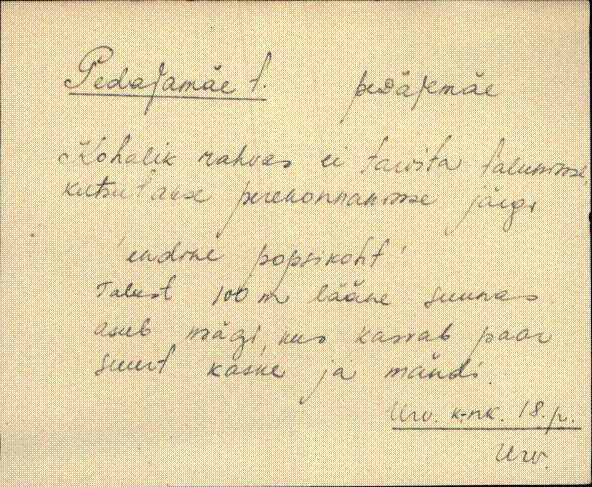 Pedajamäe t. pedäjemäe
Kohalik rahvas ei tarvita talunime,
kutsutakse perekonnanime järgi
'endine popsikoht'
Talust 100 m lääne suunas
asub mägi, kus kasvab paar
suurt kaske ja mändi.
Urv. k-nk. 18. p.
Urv.